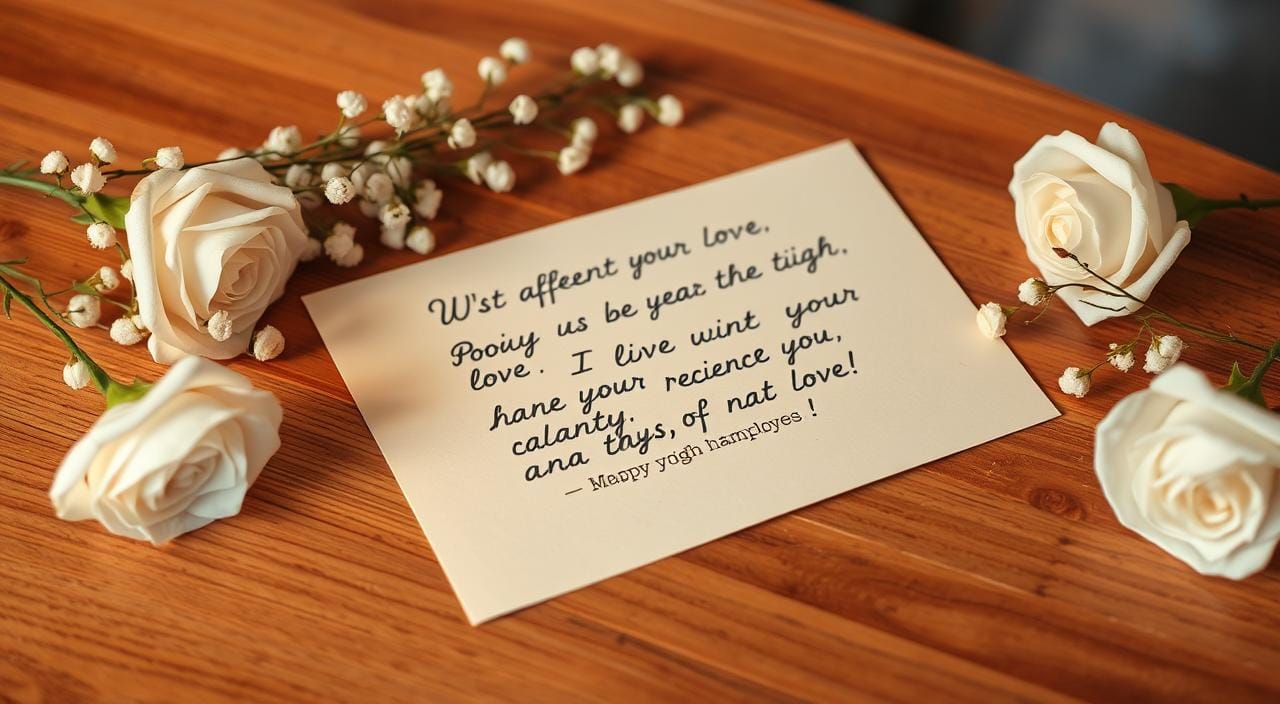 W'st affeent your love,
Pooiuy us be year the tiigh.
love. I live wint your
hane your recience you,
calanty.
ana tays, of nat love!
— Mappy yogh hamployes!